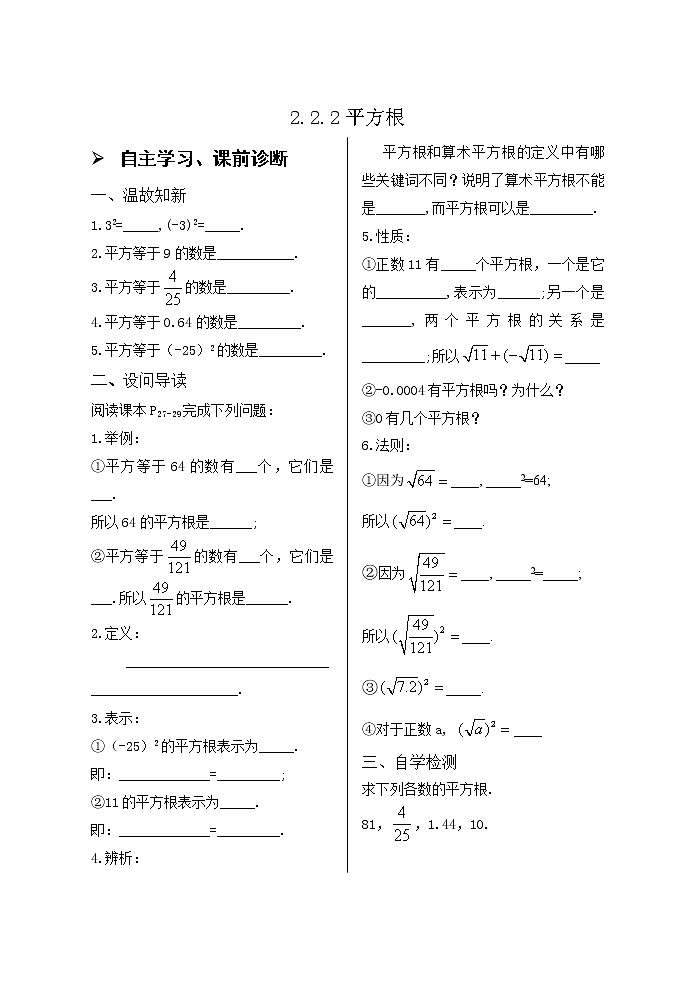 2.2.2平方根
➢ 自主学习、课前诊断
一、温故知新
1.3²=_____,(-3)²=_____.
2.平方等于9的数是___________.
3.平方等于4/25的数是_________.
4.平方等于0.64的数是_________.
5.平方等于（-25）²的数是_________.
二、设问导读
阅读课本P27-29完成下列问题：
1.举例：
①平方等于64的数有___个，它们是
___.
所以64的平方根是______;
②平方等于49/121的数有___个，它们是
___.所以49/121的平方根是______.
2.定义：
_____________________________
_____________________.
3.表示：
①（-25）²的平方根表示为_____.
即：_____________=_________;
②11的平方根表示为_____.
即：_____________=_________.
4.辨析：
平方根和算术平方根的定义中有哪
些关键词不同？说明了算术平方根不能
是_______,而平方根可以是_________.
5.性质：
①正数11有_____个平方根，一个是它
的__________,表示为______;另一个是
_______,两个平方根的关系是
_________;所以√11+(−√11)=_____
②-0.0004有平方根吗？为什么？
③0有几个平方根？
6.法则：
①因为√64=____,_____²=64;
所以(√64)²=____.
②因为√(49/121)=____,_____²=_____;
所以(√(49/121))²=____.
③(√7.2)²=_____.
④对于正数a, (√a)²=____
三、自学检测
求下列各数的平方根.
81，4/25，1.44，10.